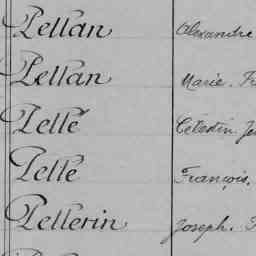 Pellan Alexandre
Pellan Marie.
Pellé Célestin
Pelle François.
Pellerin Joseph.